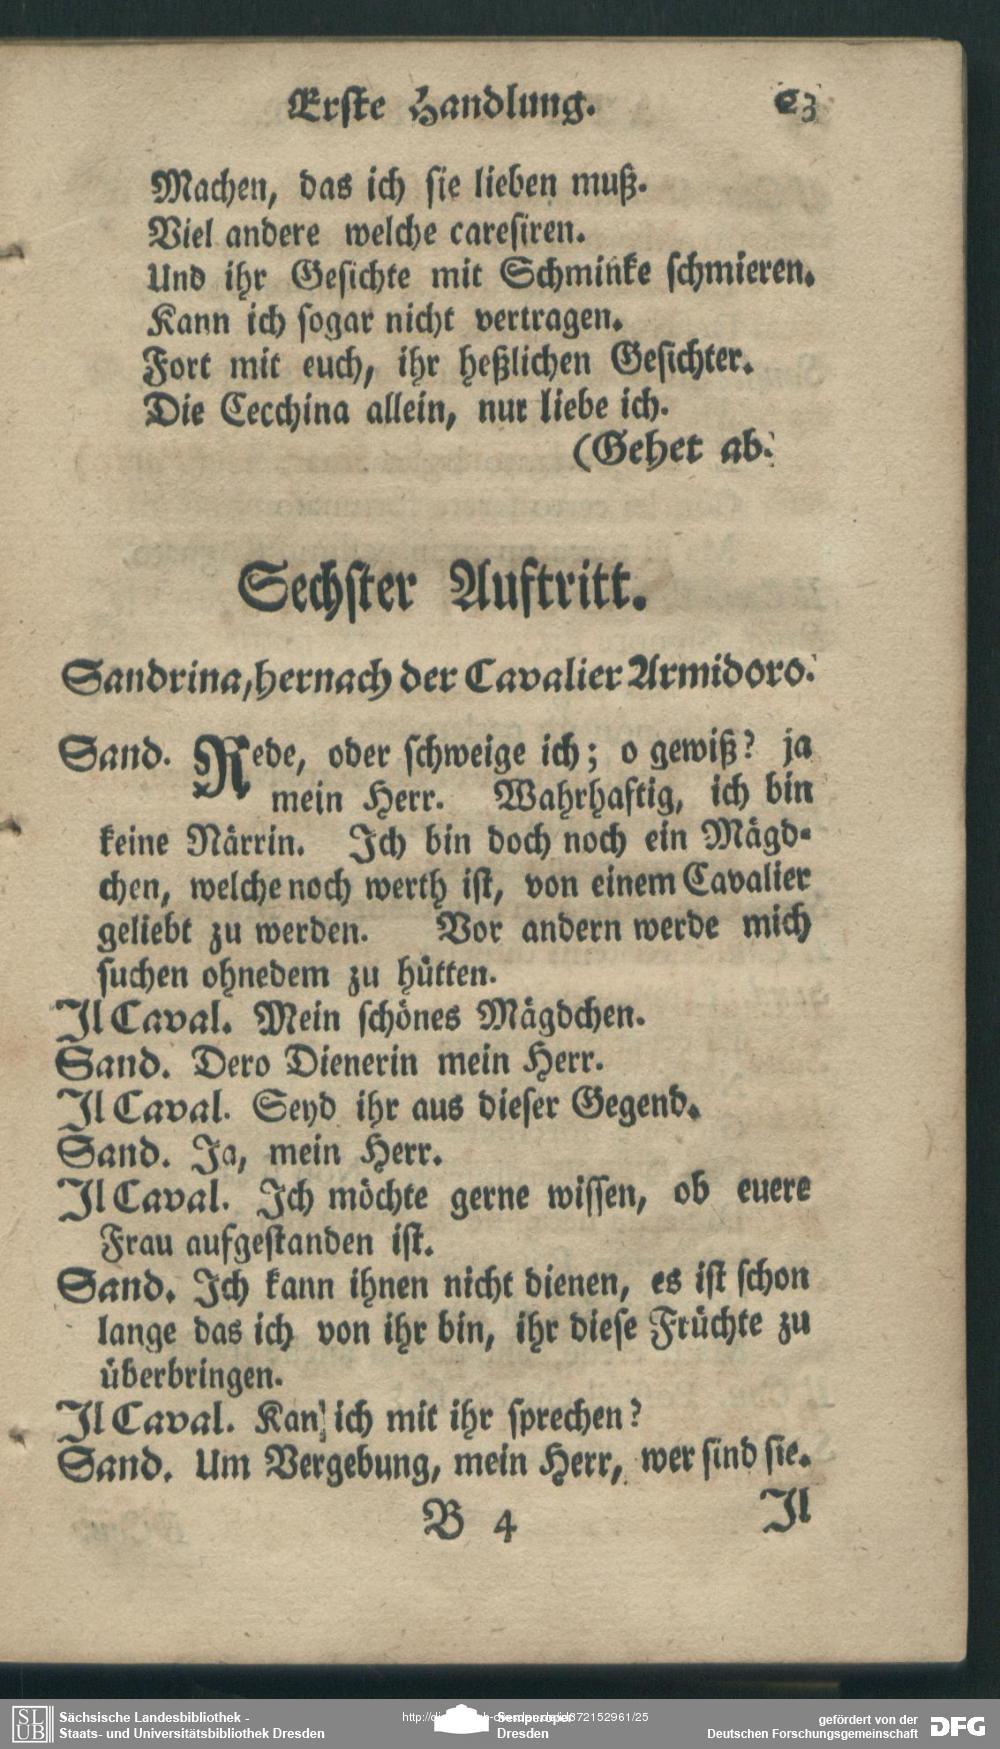 Erste Handlung. 23
Machen, das ich sie lieben muß.
Viel andere welche caresiren.
Und ihr Gesichte mit Schminke schmieren.
Kann ich sogar nicht vertragen.
Fort mit euch, ihr heßlichen Gesichter.
Die Cecchina allein, nur liebe ich.
(Gehet ab.
Sechster Auftritt.
Sandrina, hernach der Cavalier Armidoro.
Sand. Rede, oder schweige ich; o gewiß? ja
mein Herr. Wahrhaftig, ich bin
keine Närrin. Ich bin doch noch ein Mägd-
chen, welche noch werth ist, von einem Cavalier
geliebt zu werden. Vor andern werde mich
suchen ohnedem zu hütten.
Il Caval. Mein schönes Mägdchen.
Sand. Dero Dienerin mein Herr.
Il Caval. Seyd ihr aus dieser Gegend.
Sand. Ja, mein Herr.
Il Caval. Ich möchte gerne wissen, ob euere
Frau aufgestanden ist.
Sand. Ich kann ihnen nicht dienen, es ist schon
lange das ich von ihr bin, ihr diese Früchte zu
überbringen.
Il Caval. Kan ich mit ihr sprechen?
Sand. Um Vergebung, mein Herr, wer sind sie.
B 4 Il
SLUB
Sächsische Landesbibliothek -
Staats- und Universitätsbibliothek Dresden
Semperoper
Dresden
gefördert von der
Deutschen Forschungsgemeinschaft
DFG